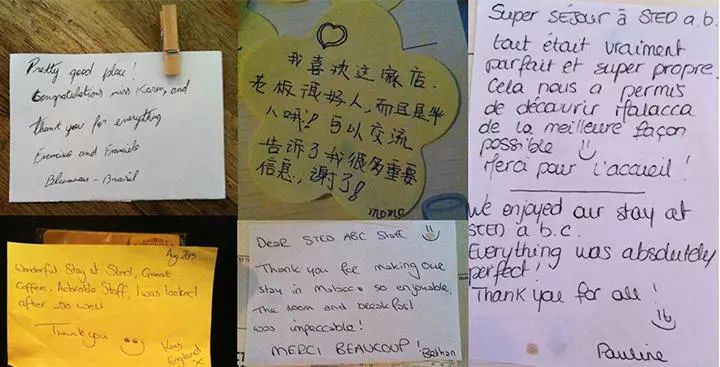 Pretty good place!
Congratulations miss Karen, and
thank you for everything
and
Blumenau - Brasil
我喜欢这家店.
老板很好人,而且是华
人哦!!可以交流
告诉了我很多重要
信息,谢了!
momo
Super SÉJOUR à STED a.b.
tout était vraiment
parfait et super propre.
Cela nous a permis
de découvrir Malacca
de la meilleure façon
possible
Merci pour l'accueil!
We enjoyed our stay at
STED a.b.c.
Everything was absolutely
perfect!
Thank you for all!
Pauline
Aug 2015
Wonderful Stay at Sted, Great
Coffee, Adorable Staff, I was looked
after so well
Thank you
England
x
DEAR STED ABC Staff.
Thank you for making our
stay in Malacca so enjoyable.
The room and breakfast
was impeccable!
MERCI BEAUCOUP!
Bethan